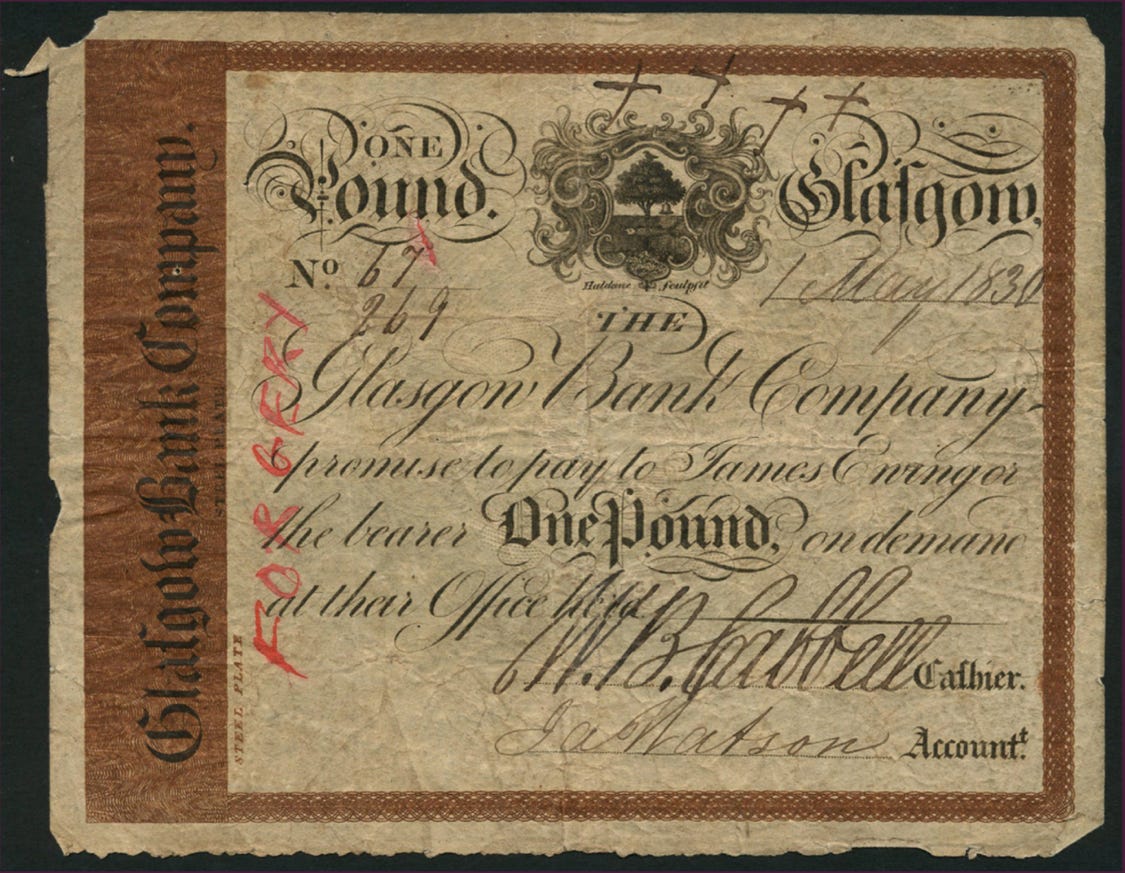 Glaſgow Bank Company.
STEEL PLATE
FORGERY
ONE
Pound.
Glaſgow,
Nº 67
269
Haldane Sculpſit
1 May 1830
THE
Glasgow Bank Company
promise to pay to James Ewing or
the bearer One Pound, on demand
at their Office here
W. B. Cabbell Caſhier.
Ja Watson Accountt.